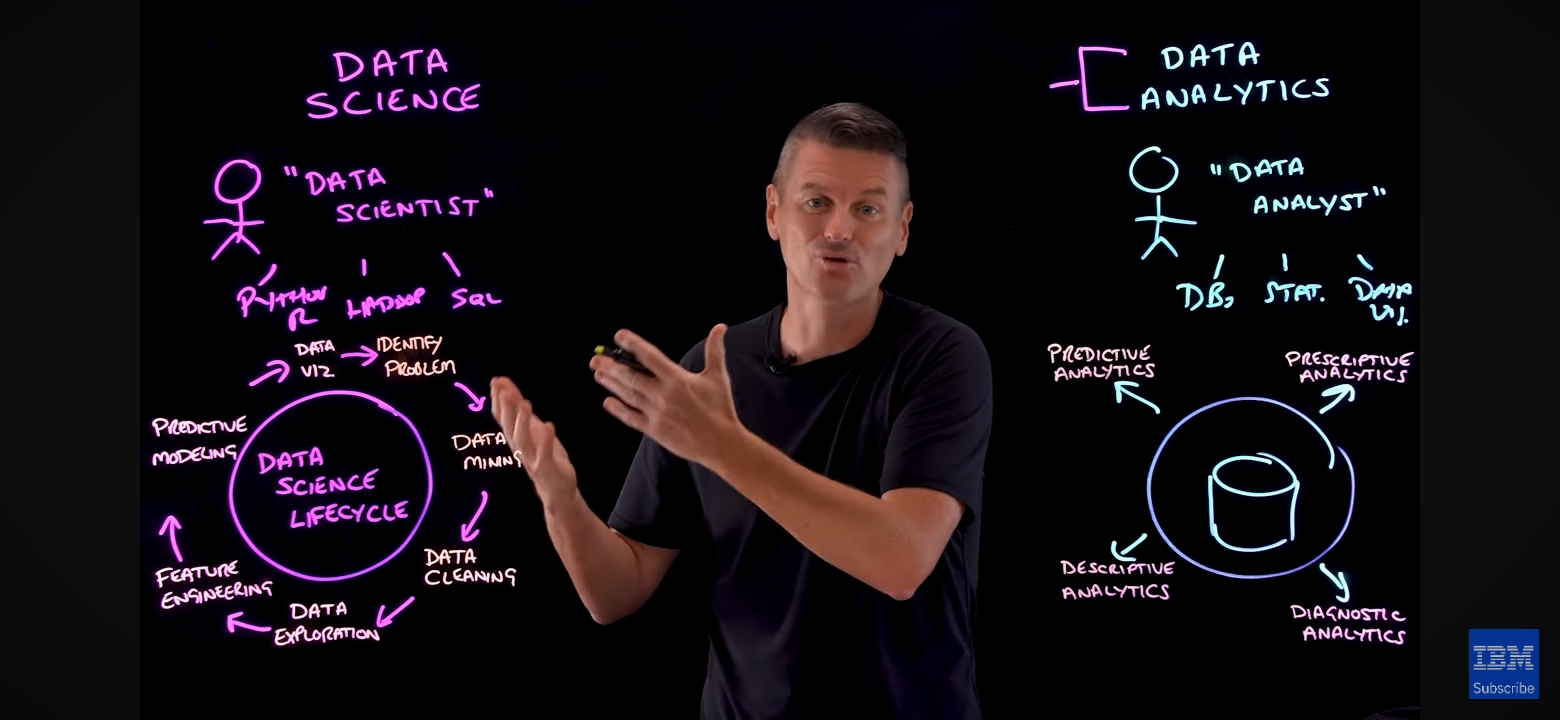 DATA
SCIENCE
"DATA
SCIENTIST"
PYTHON
R
HADOOP
SQL
DATA
VIZ
IDENTIFY
PROBLEM
DATA
MINING
DATA
CLEANING
DATA
EXPLORATION
FEATURE
ENGINEERING
PREDICTIVE
MODELING
DATA
SCIENCE
LIFECYCLE
DATA
ANALYTICS
"DATA
ANALYST"
DB,
STAT.
DATA
VI.
PREDICTIVE
ANALYTICS
PRESCRIPTIVE
ANALYTICS
DESCRIPTIVE
ANALYTICS
DIAGNOSTIC
ANALYTICS
IBM
Subscribe